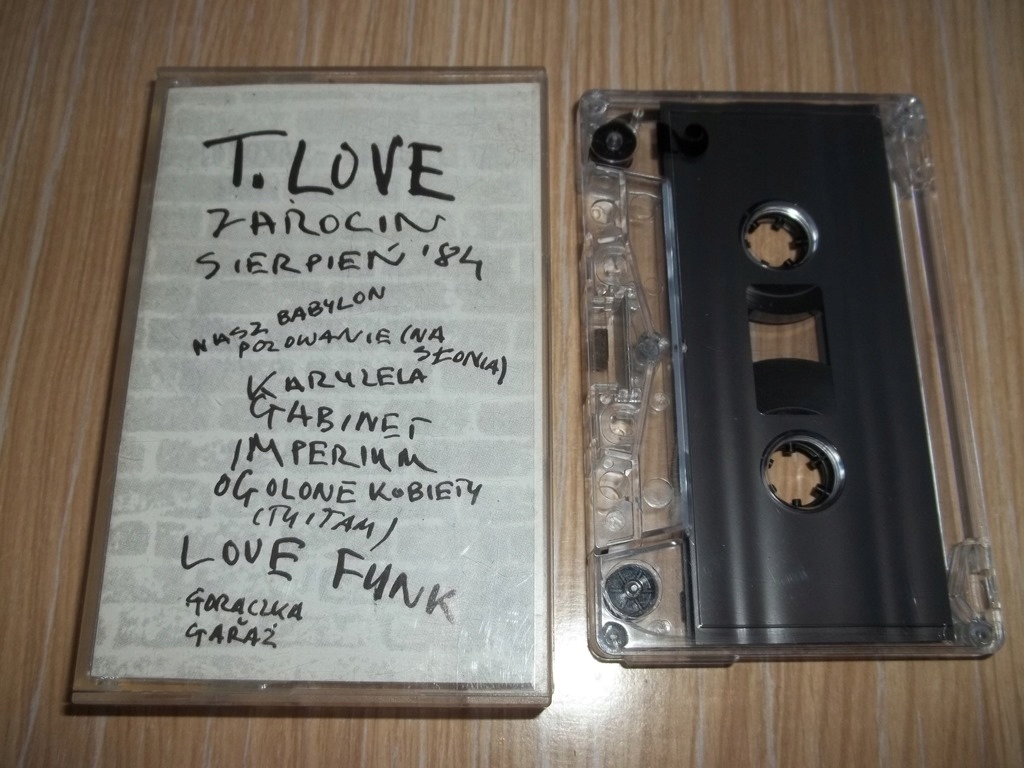 T. LOVE
ŻAROCIN
SIERPIEŃ '84
NASZ BABYLON
POZOWANIE (NA
SŁONIA)
KARUZELA
GABINET
IMPERIUM
OGOLONE KOBIETY
(TU I TAM)
LOVE FUNK
GORĄCZKA
GARAŻ
2